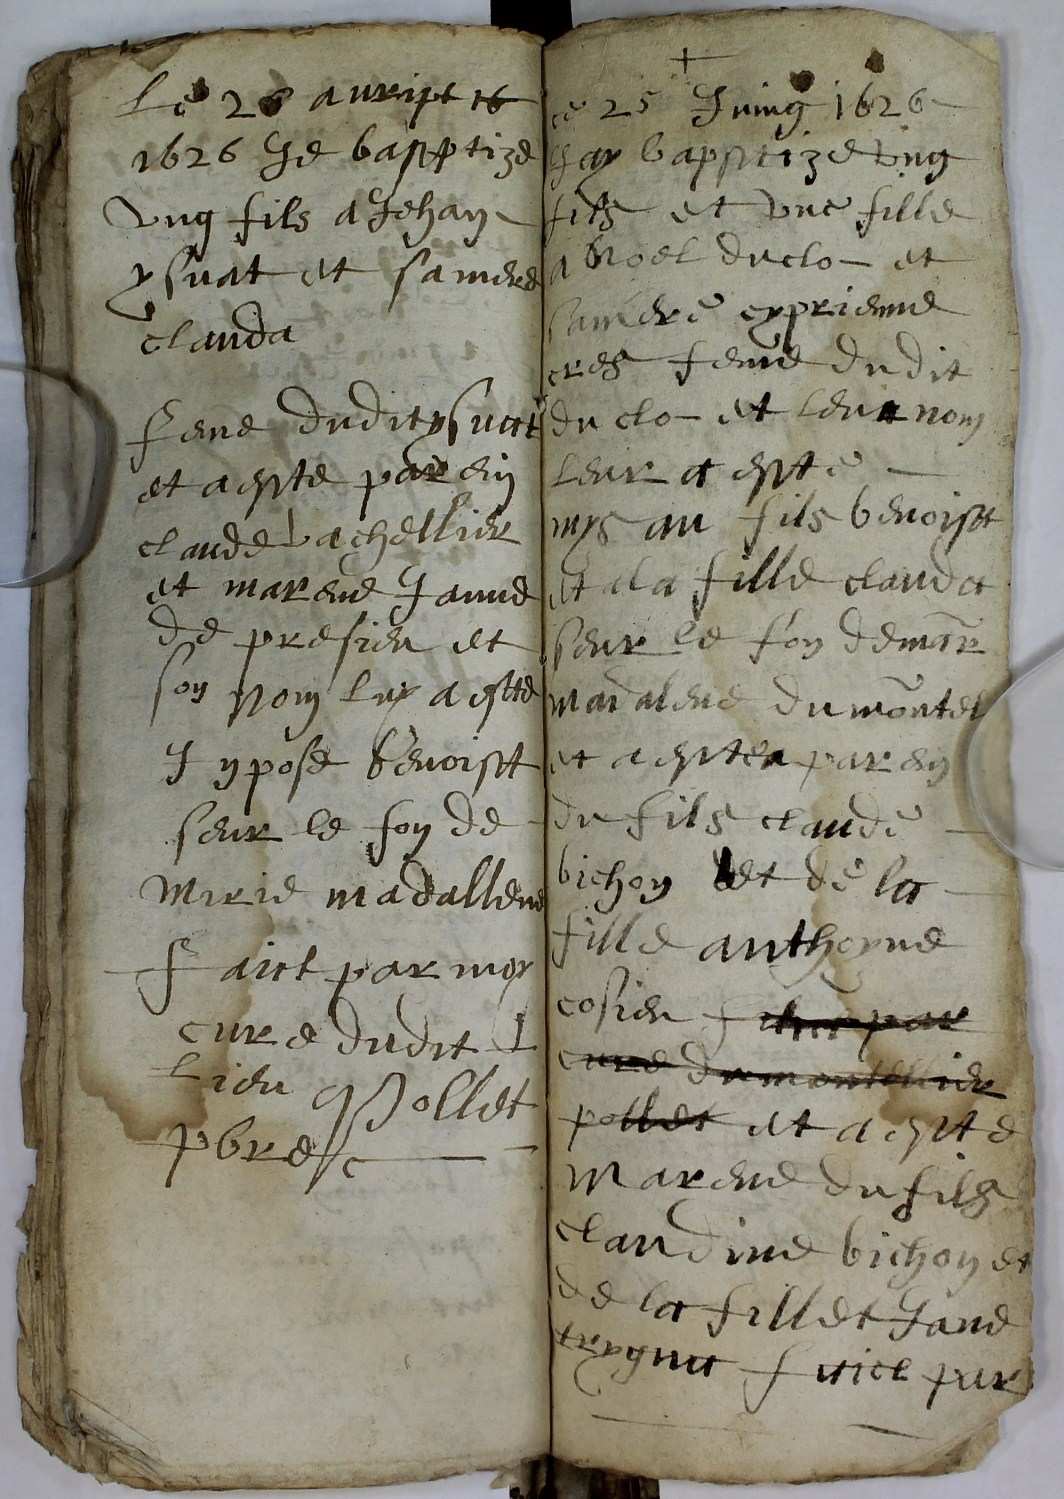 Le 26 auript 16
1626 Je bapptize
vng fils a Jehan
ysuat et samere
clauda
feme dudit ysuat
et a este parein
claude vachellier
et marene Janne
de presieu et
son nom luy a este
Jypose benoist
seur le fon de
mirie madallene
faict par moy
cure dudit
lieu Pollet
pbre
Le 25 Juing 1626
Jay bapptize vng
fils et vne fille
a Noel duclo et
samere exprienne
cres feme du dit
du clo et leur nom
leur a este
mys au fils benoist
et a la fille clauda
seur le fon de mar
madalene du montel
et a este parein
du fils claude
bichon et de la
fille anthoyne
cosieu faict par
cure du montellier
pollet et a este
marene du fils
claudine bichon et
de la fillet Jane
faict par